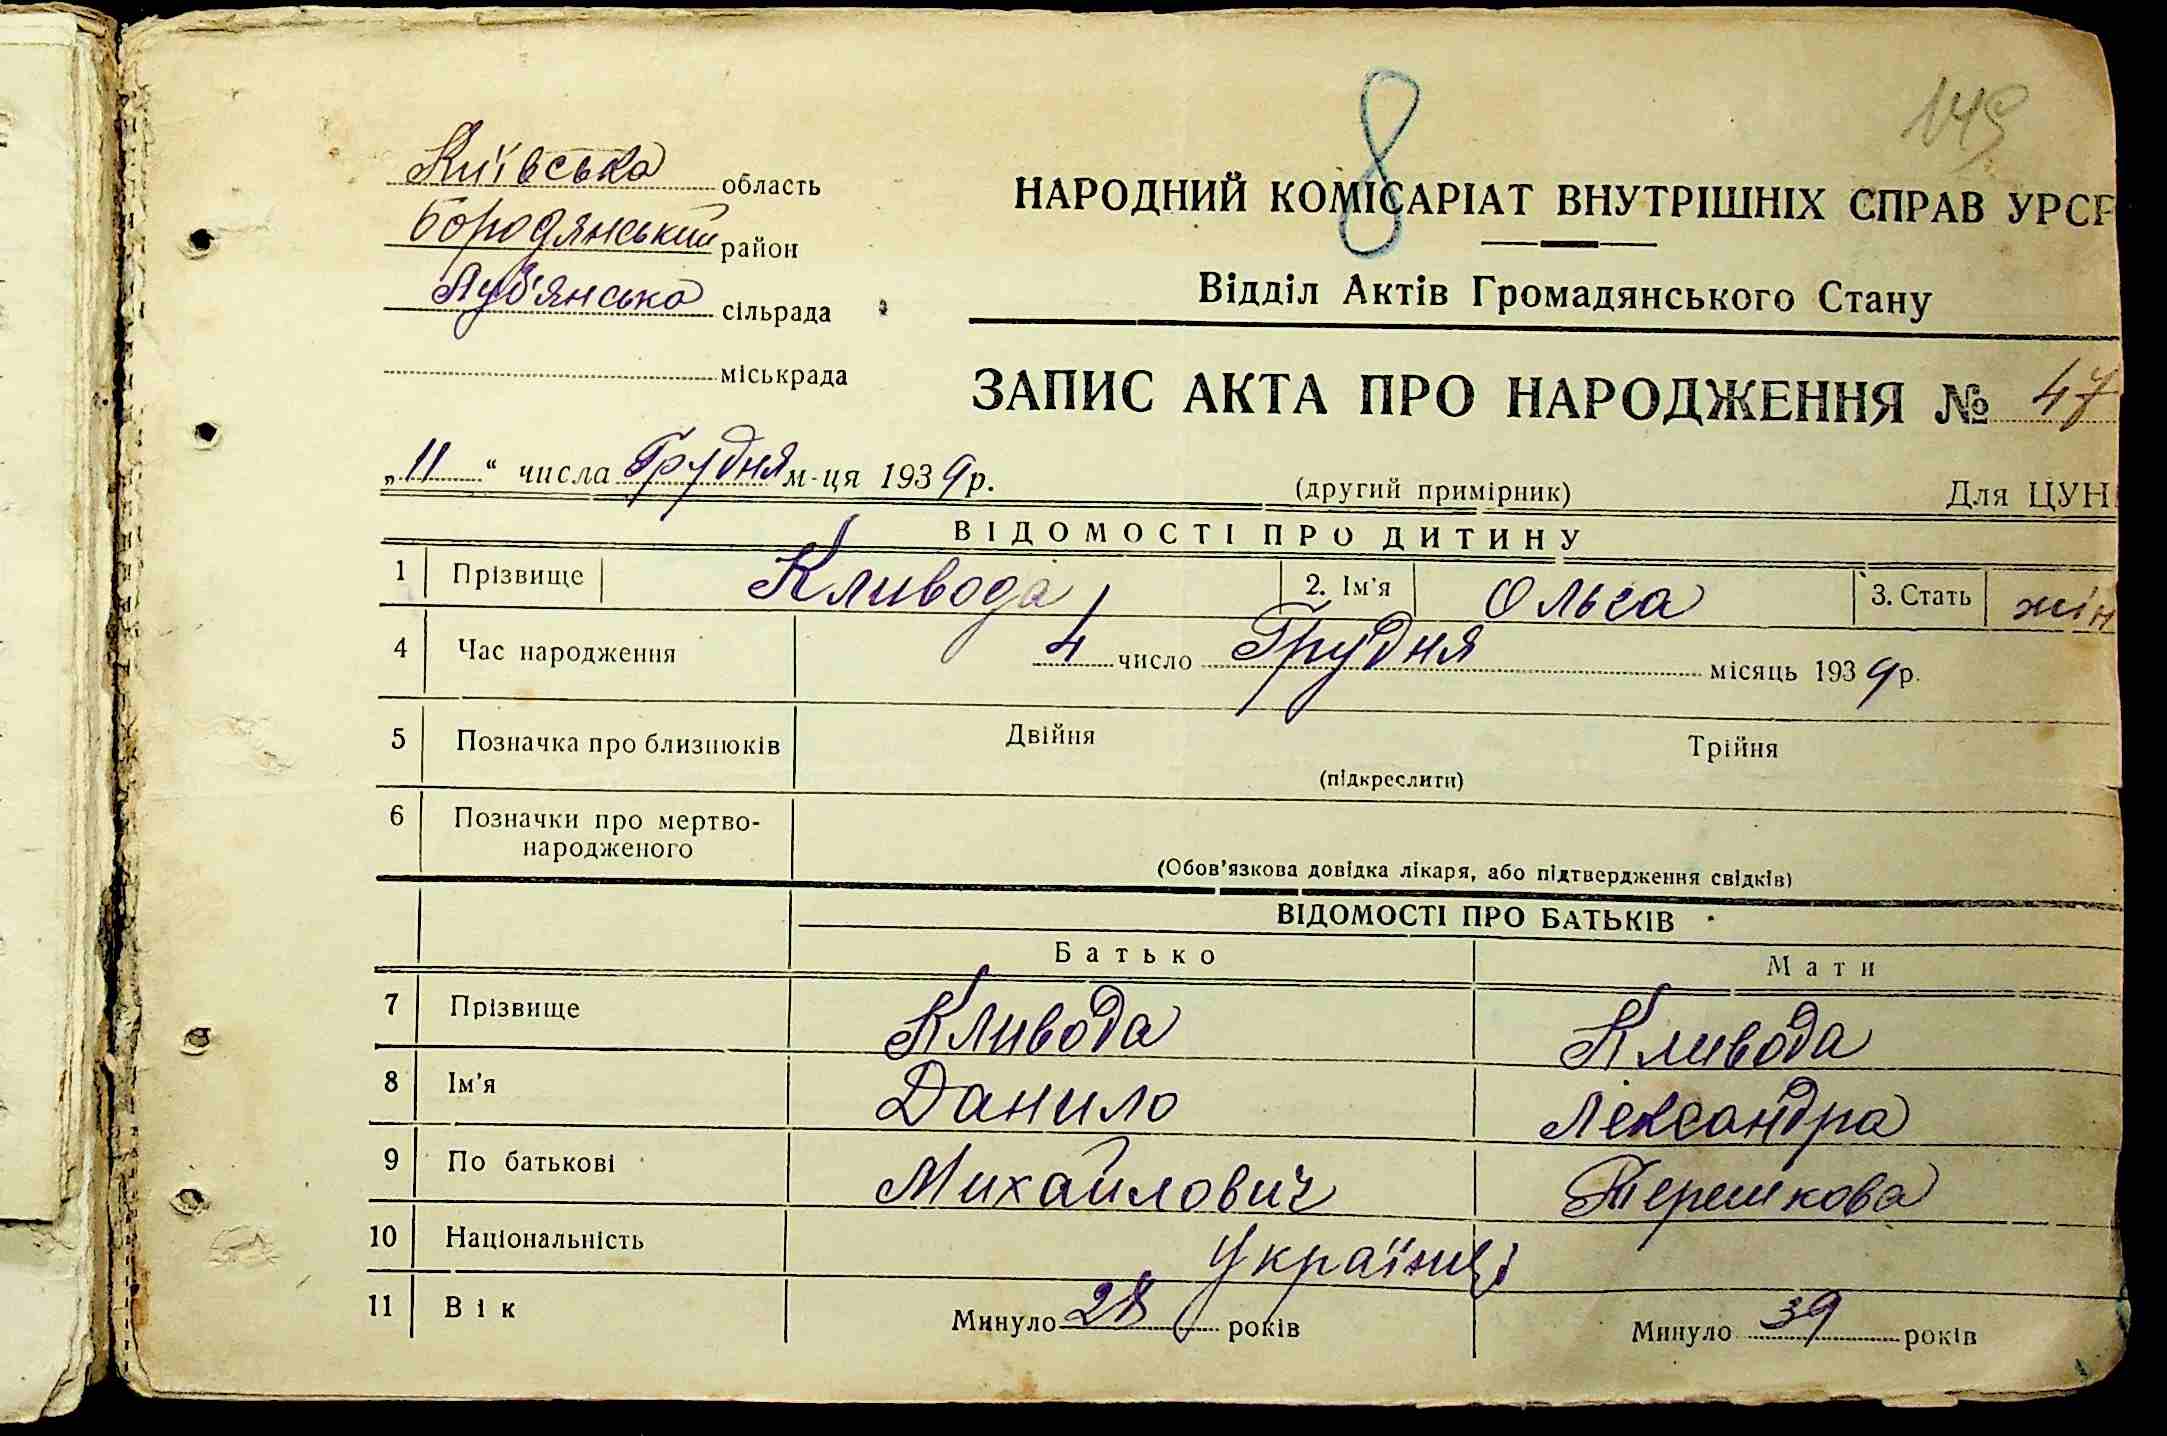 149
8
Київська область
Бородянський район
Луб'янська сільрада
міськрада
НАРОДНИЙ КОМІСАРІАТ ВНУТРІШНІХ СПРАВ УРСР
Відділ Актів Громадянського Стану
ЗАПИС АКТА ПРО НАРОДЖЕННЯ № 47
„11“ числа Грудня м-ця 1939р.
(другий примірник)
Для ЦУН
ВІДОМОСТІ ПРО ДИТИНУ
1 Прізвище Кливода 2. Ім'я Ольга 3. Стать жін
4 Час народження 4 число Грудня місяць 1939р.
5 Позначка про близнюків Двійня Трійня
(підкреслити)
6 Позначки про мертво-
народженого
(Обов'язкова довідка лікаря, або підтвердження свідків)
ВІДОМОСТІ ПРО БАТЬКІВ
Батько Мати
7 Прізвище Кливода Кливода
8 Ім'я Данило Лександра
9 По батькові Михайлович Терешкова
10 Національність Українці
11 Вік Минуло 28 років Минуло 39 років